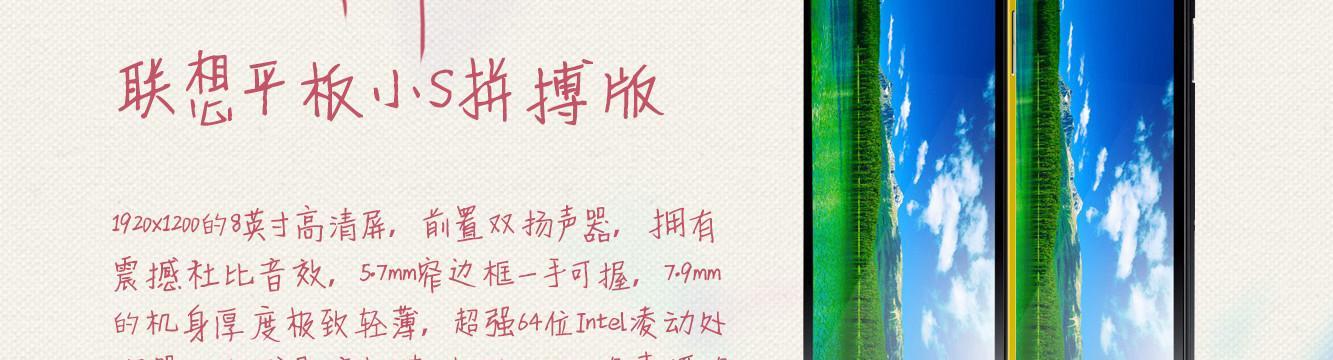 联想平板小S拼搏版
1920x1200的8英寸高清屏, 前置双扬声器, 拥有
震撼杜比音效, 5.7mm窄边框一手可握, 7.9mm
的机身厚度极致轻薄, 超强64位Intel凌动处